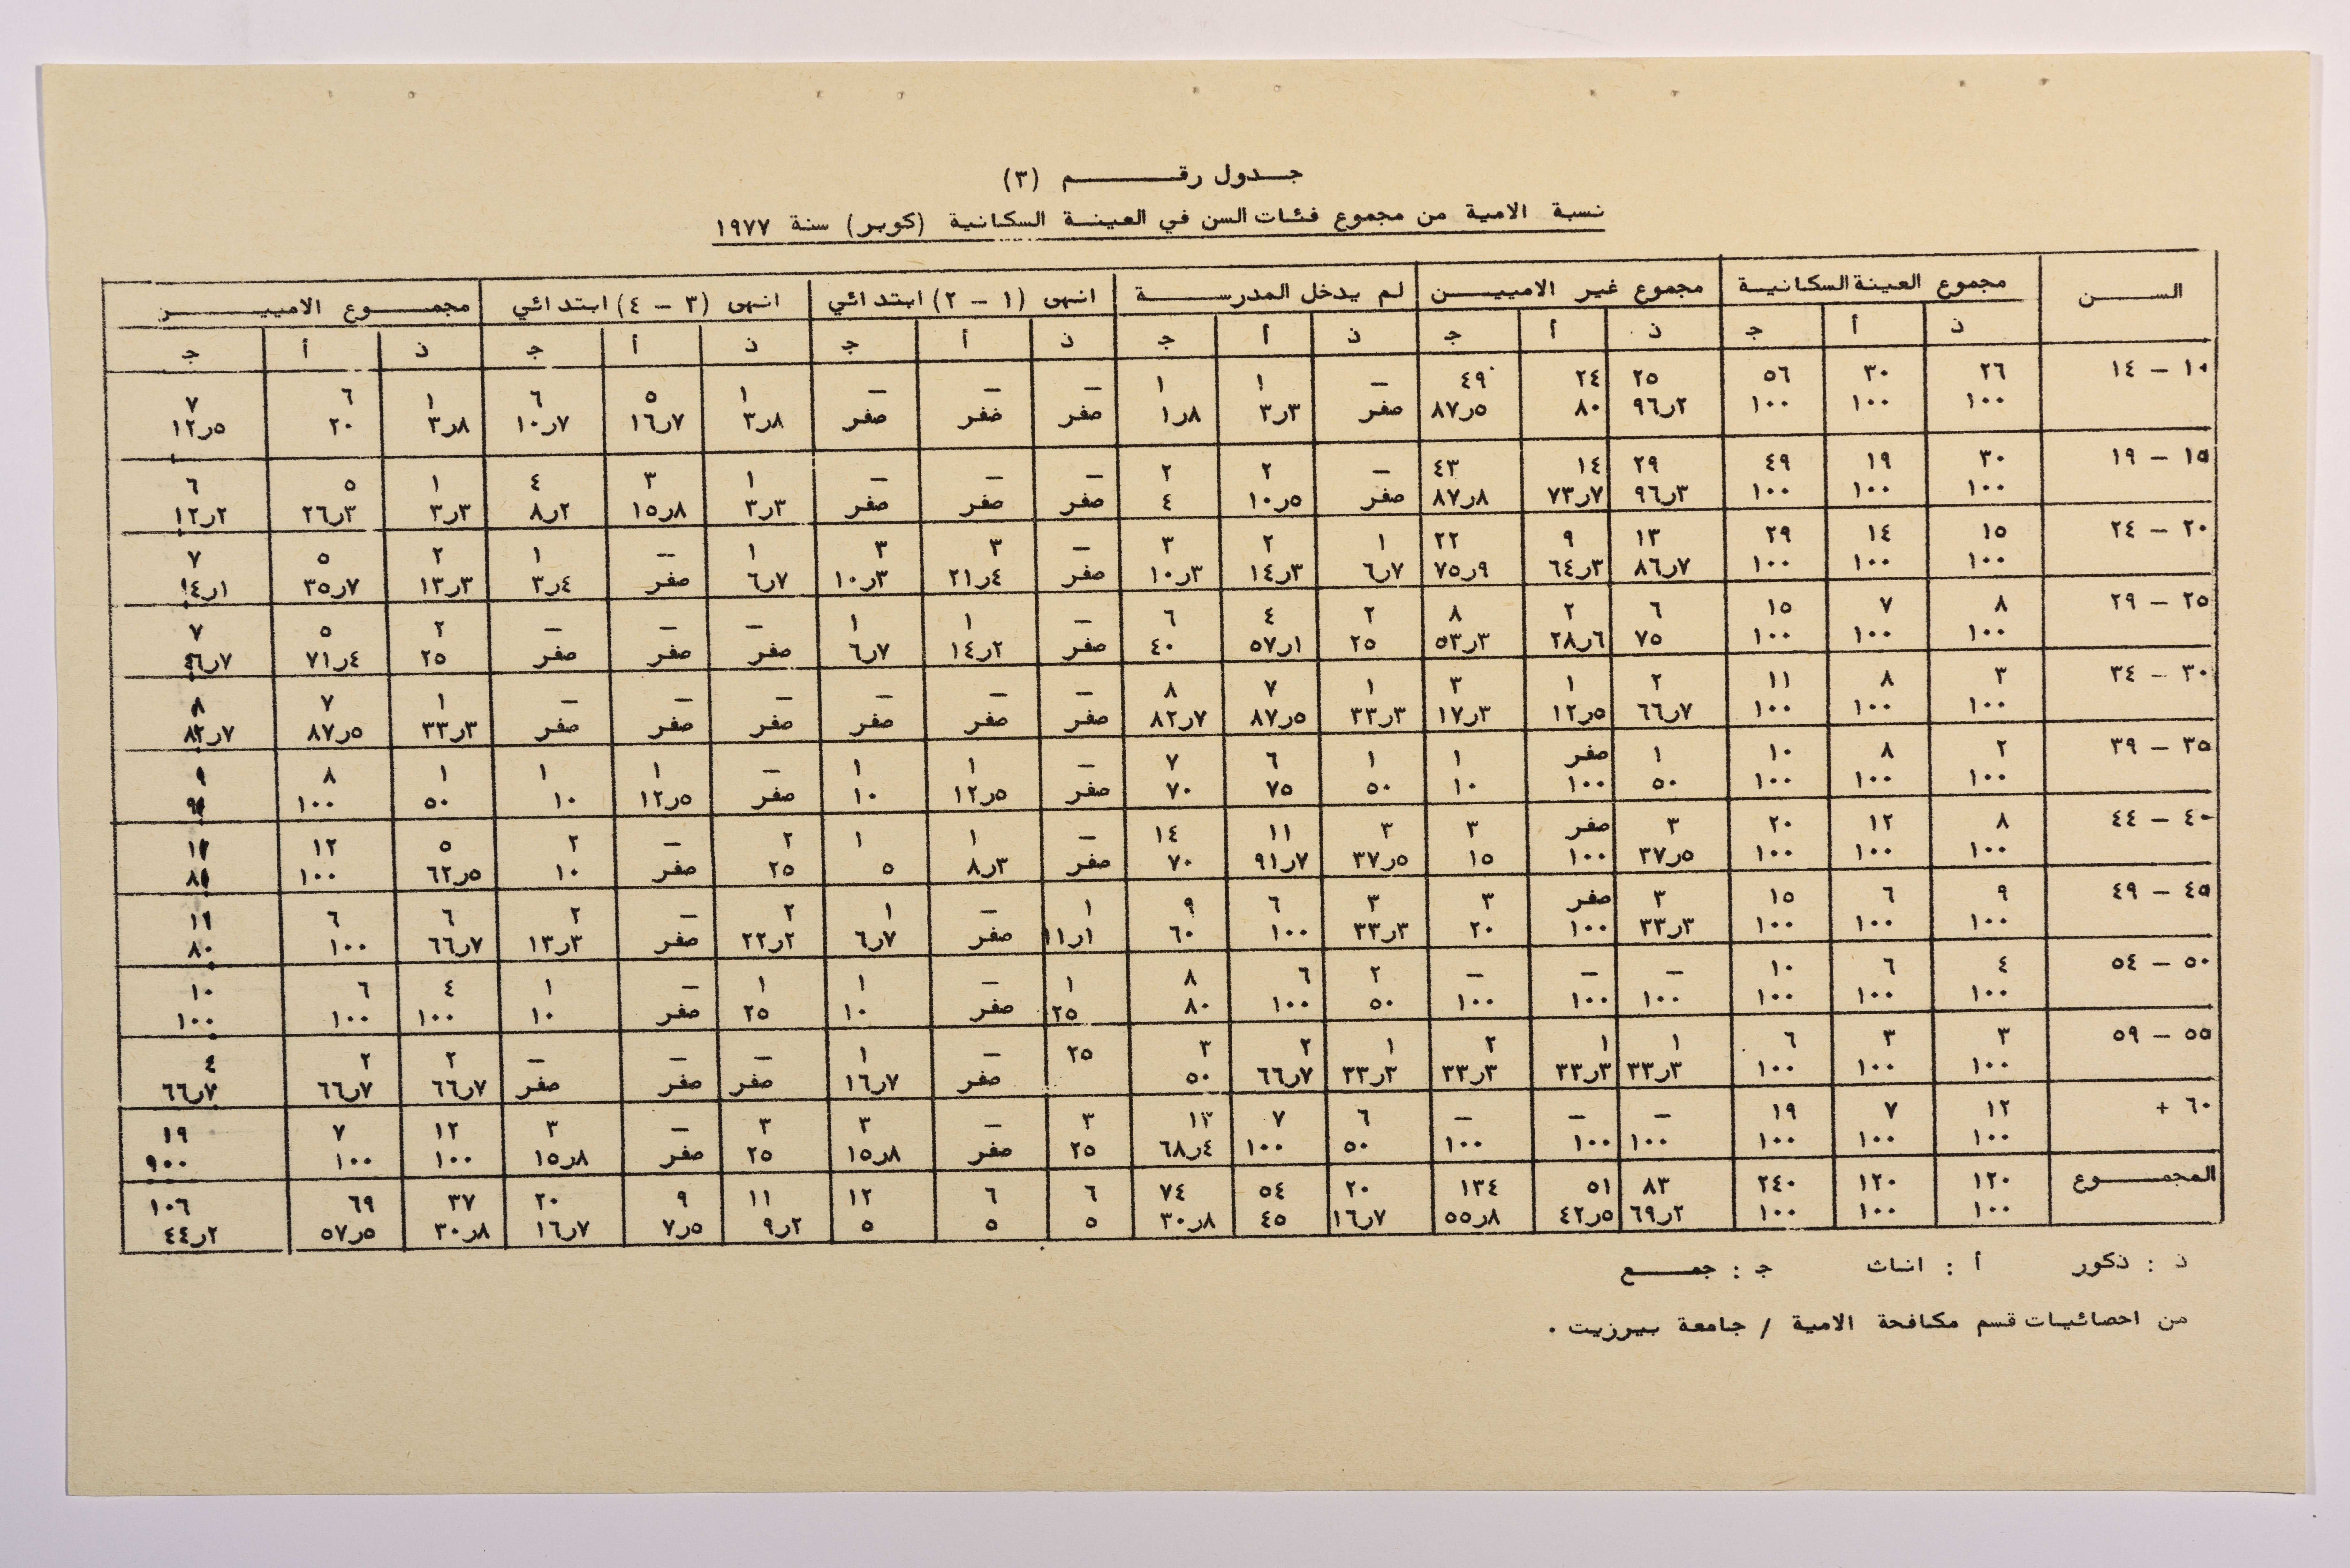 جدول رقم (٣)
نسبة الامية من مجموع فئات السن في العينة السكانية (كوبر) سنة ١٩٧٧
السن مجموع العينة السكانية مجموع غير الاميين لم يدخل المدرسة انهى (١ - ٢) ابتدائي انهى (٣ - ٤) ابتدائي مجموع الاميير
ذ أ ج ذ أ ج ذ أ ج ذ أ ج ذ أ ج ذ أ ج
١٠ - ١٤ ٢٦ ٣٠ ٥٦ ٢٥ ٢٤ ٤٩ - ١ ١ - - - ١ ٥ ٦ ١ ٦ ٧
١٠٠ ١٠٠ ١٠٠ ٢ر٩٦ ٨٠ ٥ر٨٧ صفر ٣ر٣ ٨ر١ صفر صفر صفر ٨ر٣ ٧ر١٦ ٧ر١٠ ٨ر٣ ٢٠ ٥ر١٢
١٥ - ١٩ ٣٠ ١٩ ٤٩ ٢٩ ١٤ ٤٣ - ٢ ٢ - - - ١ ٣ ٤ ١ ٥ ٦
١٠٠ ١٠٠ ١٠٠ ٣ر٩٦ ٧ر٧٣ ٨ر٨٧ صفر ٥ر١٠ ٤ صفر صفر صفر ٣ر٣ ٨ر١٥ ٢ر٨ ٣ر٣ ٣ر٢٦ ٢ر١٢
٢٠ - ٢٤ ١٥ ١٤ ٢٩ ١٣ ٩ ٢٢ ١ ٢ ٣ - ٣ ٣ ١ -- ١ ٢ ٥ ٧
١٠٠ ١٠٠ ١٠٠ ٧ر٨٦ ٣ر٦٤ ٩ر٧٥ ٧ر٦ ٣ر١٤ ٣ر١٠ صفر ٤ر٢١ ٣ر١٠ ٧ر٦ صفر ٤ر٣ ٣ر١٣ ٧ر٣٥ ١ر١٤
٢٥ - ٢٩ ٨ ٧ ١٥ ٦ ٢ ٨ ٢ ٤ ٦ - ١ ١ - - - ٢ ٥ ٧
١٠٠ ١٠٠ ١٠٠ ٧٥ ٦ر٢٨ ٣ر٥٣ ٢٥ ١ر٥٧ ٤٠ صفر ٢ر١٤ ٧ر٦ صفر صفر صفر ٢٥ ٤ر٧١ ٧ر٤٦
٣٠ - ٣٤ ٣ ٨ ١١ ٢ ١ ٣ ١ ٧ ٨ - - - - - - ١ ٧ ٨
١٠٠ ١٠٠ ١٠٠ ٧ر٦٦ ٥ر١٢ ٣ر١٧ ٣ر٣٣ ٥ر٨٧ ٧ر٨٢ صفر صفر صفر صفر صفر صفر ٣ر٣٣ ٥ر٨٧ ٧ر٨٢
٣٥ - ٣٩ ٢ ٨ ١٠ ١ صفر ١ ١ ٦ ٧ - ١ ١ - ١ ١ ١ ٨ ٩
١٠٠ ١٠٠ ١٠٠ ٥٠ ١٠٠ ١٠ ٥٠ ٧٥ ٧٠ صفر ٥ر١٢ ١٠ صفر ٥ر١٢ ١٠ ٥٠ ١٠٠
٤٠ - ٤٤ ٨ ١٢ ٢٠ ٣ صفر ٣ ٣ ١١ ١٤ - ١ ١ ٢ - ٢ ٥ ١٢
١٠٠ ١٠٠ ١٠٠ ٥ر٣٧ ١٠٠ ١٥ ٥ر٣٧ ٧ر٩١ ٧٠ صفر ٣ر٨ ٥ ٢٥ صفر ١٠ ٥ر٦٢ ١٠٠
٤٥ - ٤٩ ٩ ٦ ١٥ ٣ صفر ٣ ٣ ٦ ٩ ١ - ١ ٢ - ٢ ٦ ٦
١٠٠ ١٠٠ ١٠٠ ٣ر٣٣ ١٠٠ ٢٠ ٣ر٣٣ ١٠٠ ٦٠ ١ر١١ صفر ٧ر٦ ٢ر٢٢ صفر ٣ر١٣ ٧ر٦٦ ١٠٠ ٨٠
٥٠ - ٥٤ ٤ ٦ ١٠ - - - ٢ ٦ ٨ ١ - ١ ١ - ١ ٤ ٦ ١٠
١٠٠ ١٠٠ ١٠٠ ١٠٠ ١٠٠ ١٠٠ ٥٠ ١٠٠ ٨٠ ٢٥ صفر ١٠ ٢٥ صفر ١٠ ١٠٠ ١٠٠ ١٠٠
٥٥ - ٥٩ ٣ ٣ ٦ ١ ١ ٢ ١ ٢ ٣ ٢٥ - ١ - - - ٢ ٢ ٤
١٠٠ ١٠٠ ١٠٠ ٣ر٣٣ ٣ر٣٣ ٣ر٣٣ ٣ر٣٣ ٧ر٦٦ ٥٠ صفر ٧ر١٦ صفر صفر صفر ٧ر٦٦ ٧ر٦٦ ٧ر٦٦
٦٠ + ١٢ ٧ ١٩ - - - ٦ ٧ ١٣ ٣ - ٣ ٣ - ٣ ١٢ ٧ ١٩
١٠٠ ١٠٠ ١٠٠ ١٠٠ ١٠٠ ١٠٠ ٥٠ ١٠٠ ٤ر٦٨ ٢٥ صفر ٨ر١٥ ٢٥ صفر ٨ر١٥ ١٠٠ ١٠٠ ٩٠٠
المجموع ١٢٠ ١٢٠ ٢٤٠ ٨٣ ٥١ ١٣٤ ٢٠ ٥٤ ٧٤ ٦ ٦ ١٢ ١١ ٩ ٢٠ ٣٧ ٦٩ ١٠٦
١٠٠ ١٠٠ ١٠٠ ٢ر٦٩ ٥ر٤٢ ٨ر٥٥ ٧ر١٦ ٤٥ ٨ر٣٠ ٥ ٥ ٥ ٢ر٩ ٥ر٧ ٧ر١٦ ٨ر٣٠ ٥ر٥٧ ٢ر٤٤
ذ : ذكور أ : اناث ج : جمع
من احصائيات قسم مكافحة الامية / جامعة بيرزيت .